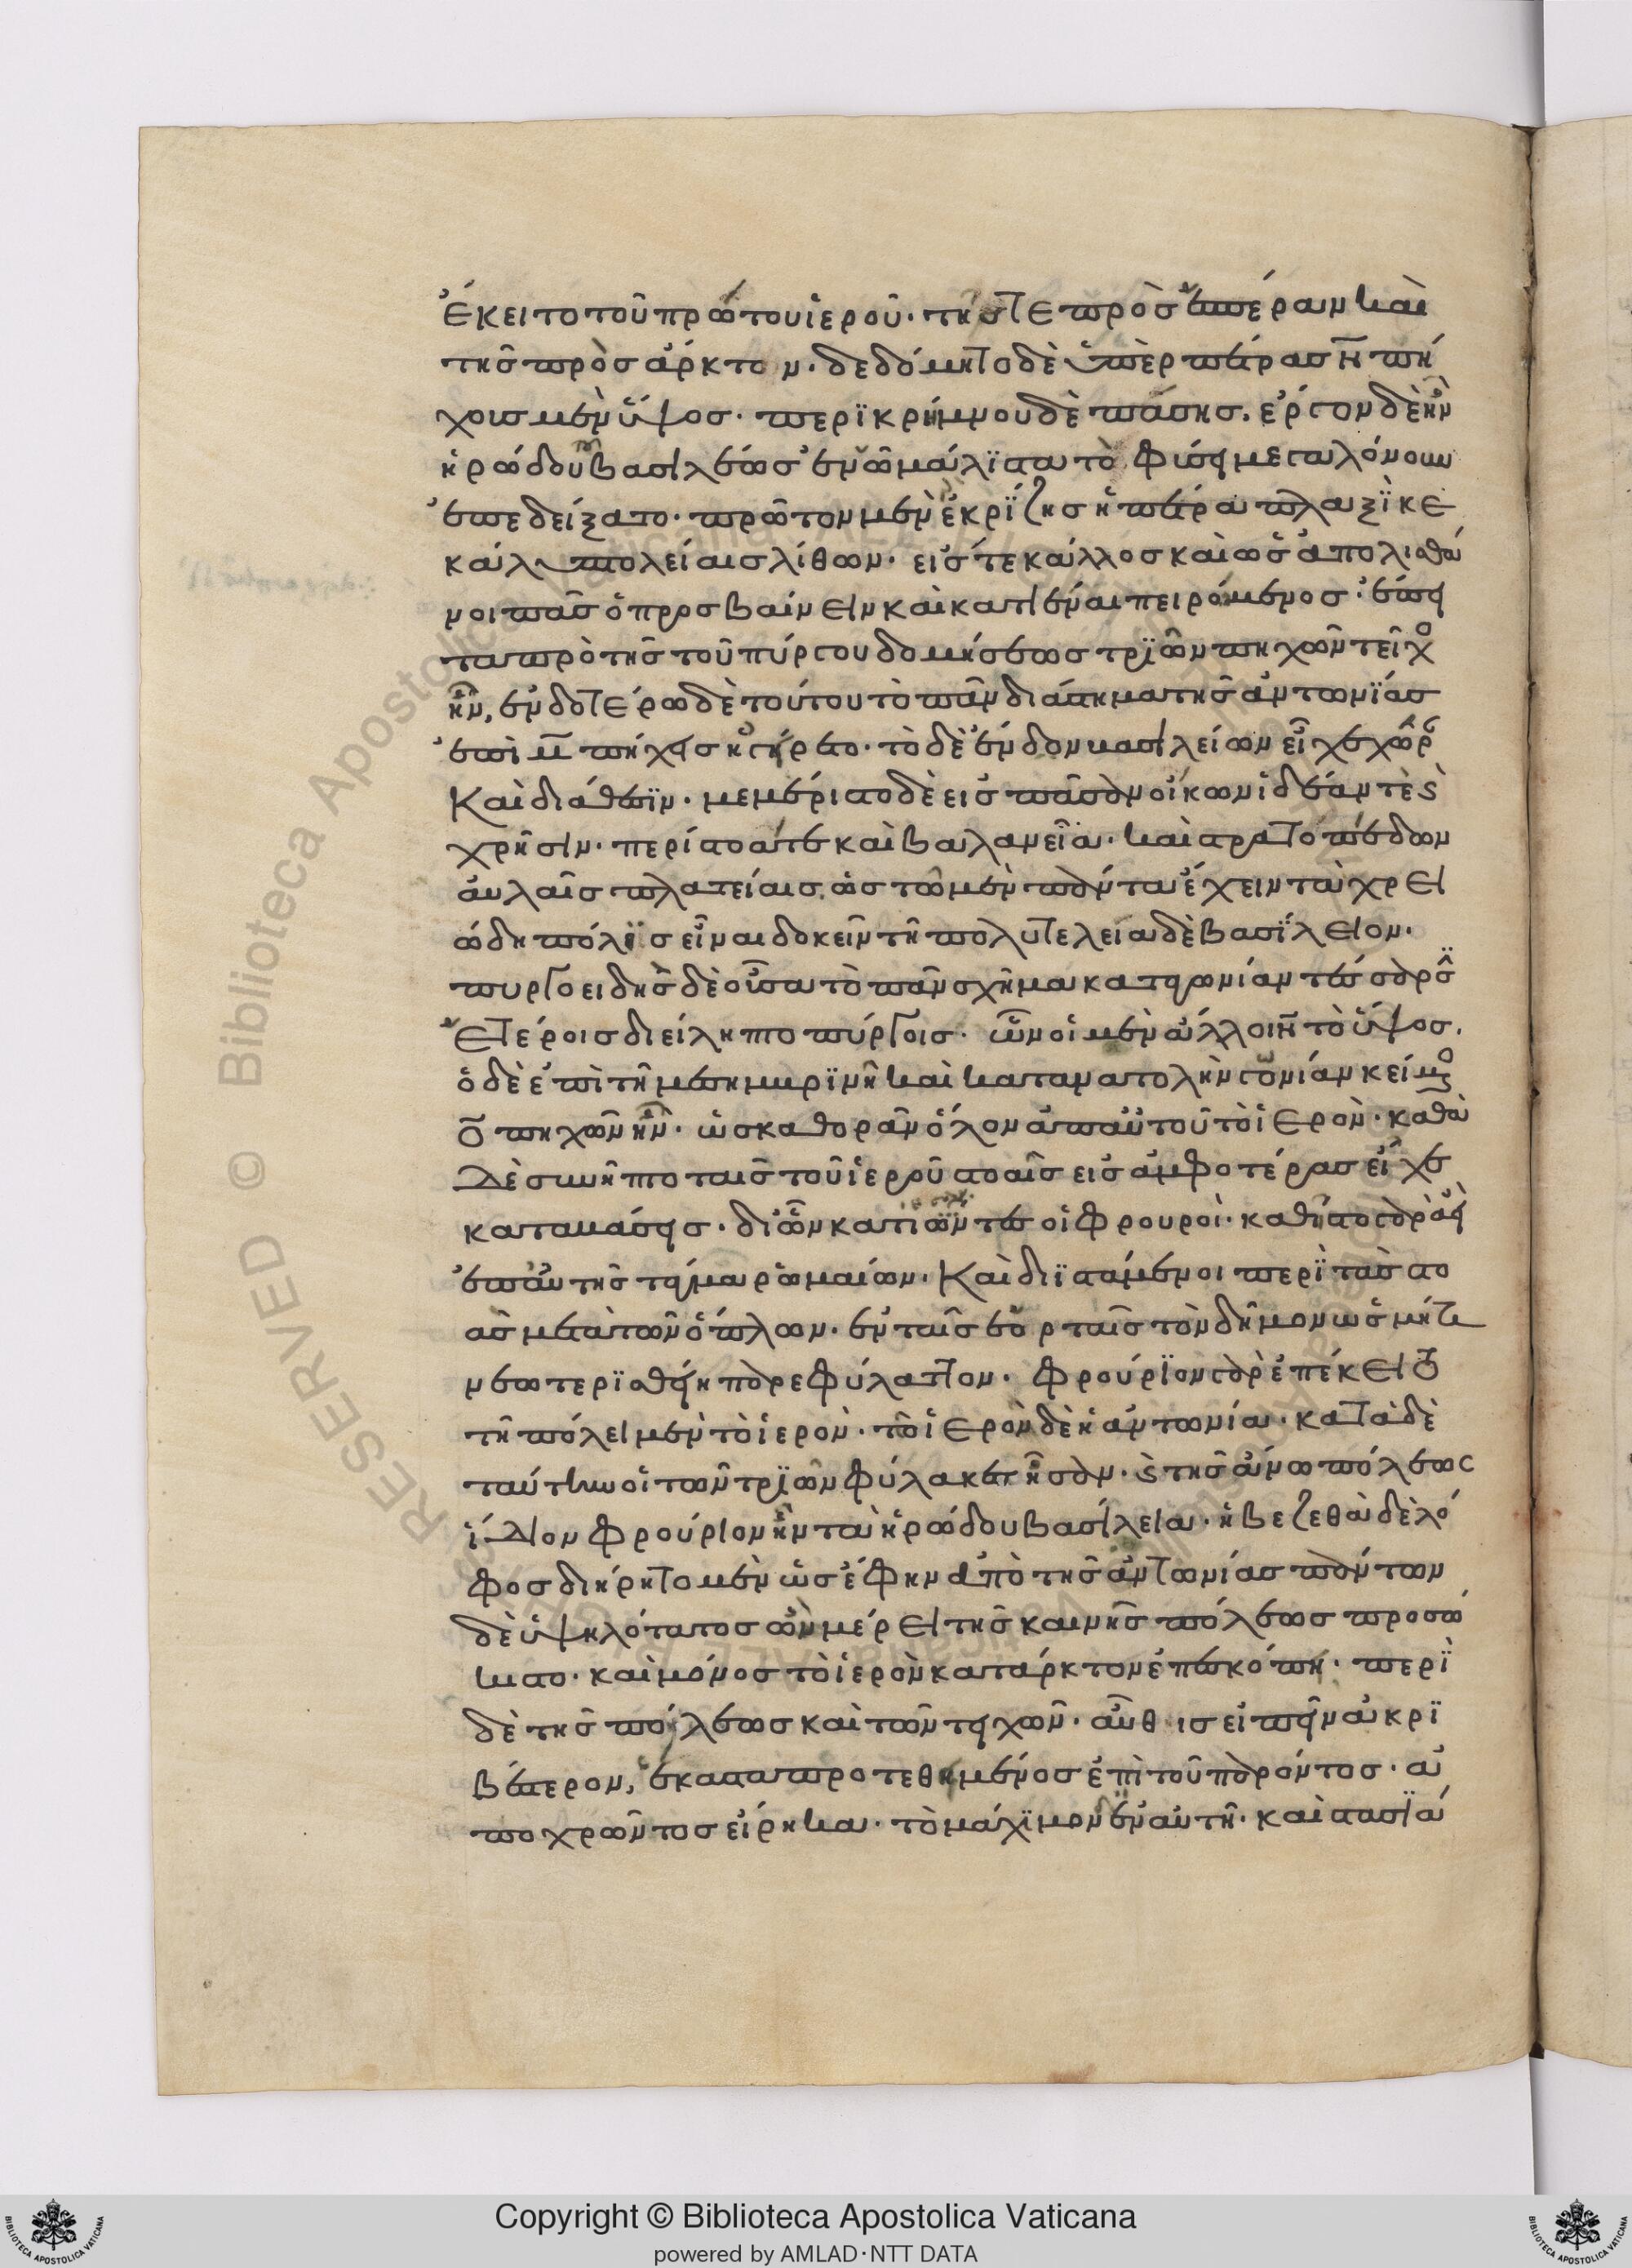 ἔκειτο τοῦ πρώτου ἱεροῦ· τῆς τε πρὸς ἑσπέραν καὶ
τῆς πρὸς ἄρκτον· δεδόμητο δὲ ὑπὲρ πέτρας ν̄ πή
χοις μὲν ὕψος· περικρήμνου δὲ πάσης. ἔργον δὲ ἦν
ἡρώδου βασιλέως ἐν ὧ μάλιστα τὸ φύσει μεγαλόνουν
ἐπεδείξατο· πρῶτον μὲν ἐκ ρίζης ἡ πέτρα πλαξὶ κε
κάλυπτο λείαις λίθων· εἴς τε κάλλος καὶ ὡς ἀπολισθά
νοι πᾶς ὁ προσβαίνειν καὶ κατιέναι πειρόμενος· ἔπει
τα πρὸ τῆς τοῦ πύργου δομήσεως τριῶν πηχῶν τεῖχο
ἦν, ἐνδοτέρω δὲ τούτου τὸ πᾶν διάστημα τῆς ἀντωνίας
ἐπὶ μ̄ πήχεις ἠγείρετο· τὸ δὲ ἔνδον βασιλείων εἶχε χώρ
καὶ διάθεσιν· μεμέριστο δὲ εἰς πᾶσαν οἴκων ἰδέαν τὲ ϛ
χρῆσιν· περίστοά τε καὶ βαλανεῖα· καὶ στρατοπέδων
αὐλαῖς πλατείαις, ὡς τῶ μὲν πάντα ἔχειν τὰ χρει
ώδη πόλις εἶναι δοκεῖν τῆ πολυτελεία δὲ βασίλειον·
πυργοειδὴς δὲ οὖσα τὸ πᾶν σχῆμα κατα γωνίαν τέσσαρσ
ἑτέροις διείληπτο πύργοις· ὧν οἱ μὲν ἄλλοι ν̄ τὸ ὕψος.
ὁ δὲ ἐπὶ τῆ μεσημβρινῆ καὶ κατα ἀνατολὴν γωνίαν κείμ
ο̄ πηχῶν ἦν· ὡς καθορᾶν ὅλον ἀπ αὐτοῦ τὸ ἱερὸν· καθὰ
δὲ συνῆπτο ταῖς τοῦ ἱεροῦ στοαῖς εἰς ἀμφοτέρας εἶχε
καταβάσεις· δι ὧν κατιόντες οἱ φρουροὶ· καθῆστο γὰρ ἀεὶ
ἐπ αὐτῆς τάγμα ρωμαίων· καὶ διϊστάμενοι περὶ τὰς στο
ὰς μετὰ τῶν ὅπλων· ἐν ταῖς ἑορταῖς τὸν δῆμον ὡς μήτι
νεωτερισθείη παρεφύλαττον· φρούριον γὰρ ἐπέκειτο
τῆ πόλει μὲν τὸ ἱερὸν· τὸ ἱερὸν δὲ ἡ ἀντωνία· κατὰ δὲ
ταύτην οἱ τῶν τριῶν φύλακες ἦσαν· ϛ τῆς ἄνω πόλεως
ἴδιον φρούριον ἦν τὰ ἡρώδου βασίλεια· ἡ βεζεθὰ δὲ λό
φος διήρητο μὲν ὡς ἔφην ἀπὸ τῆς ἀντωνίας πάντων
δὲ ὑψηλότατος ὢν μέρει τῆς καινῆς πόλεως προσώ
κιστο· καὶ μόνος τὸ ἱερὸν κατάρκτον ἐπεσκότει· περὶ
δὲ τῆς πόλεως καὶ τῶν τειχῶν· αὖθις εἰπεῖν ἀκρι
βέστερον, ἕκαστα προτεθημένος ἐπὶ τοῦ παρόντος· ἀ
ποχρώντος εἴρηκα· τὸ μάχιμον ἐν αὐτῆ· καὶ στασιά